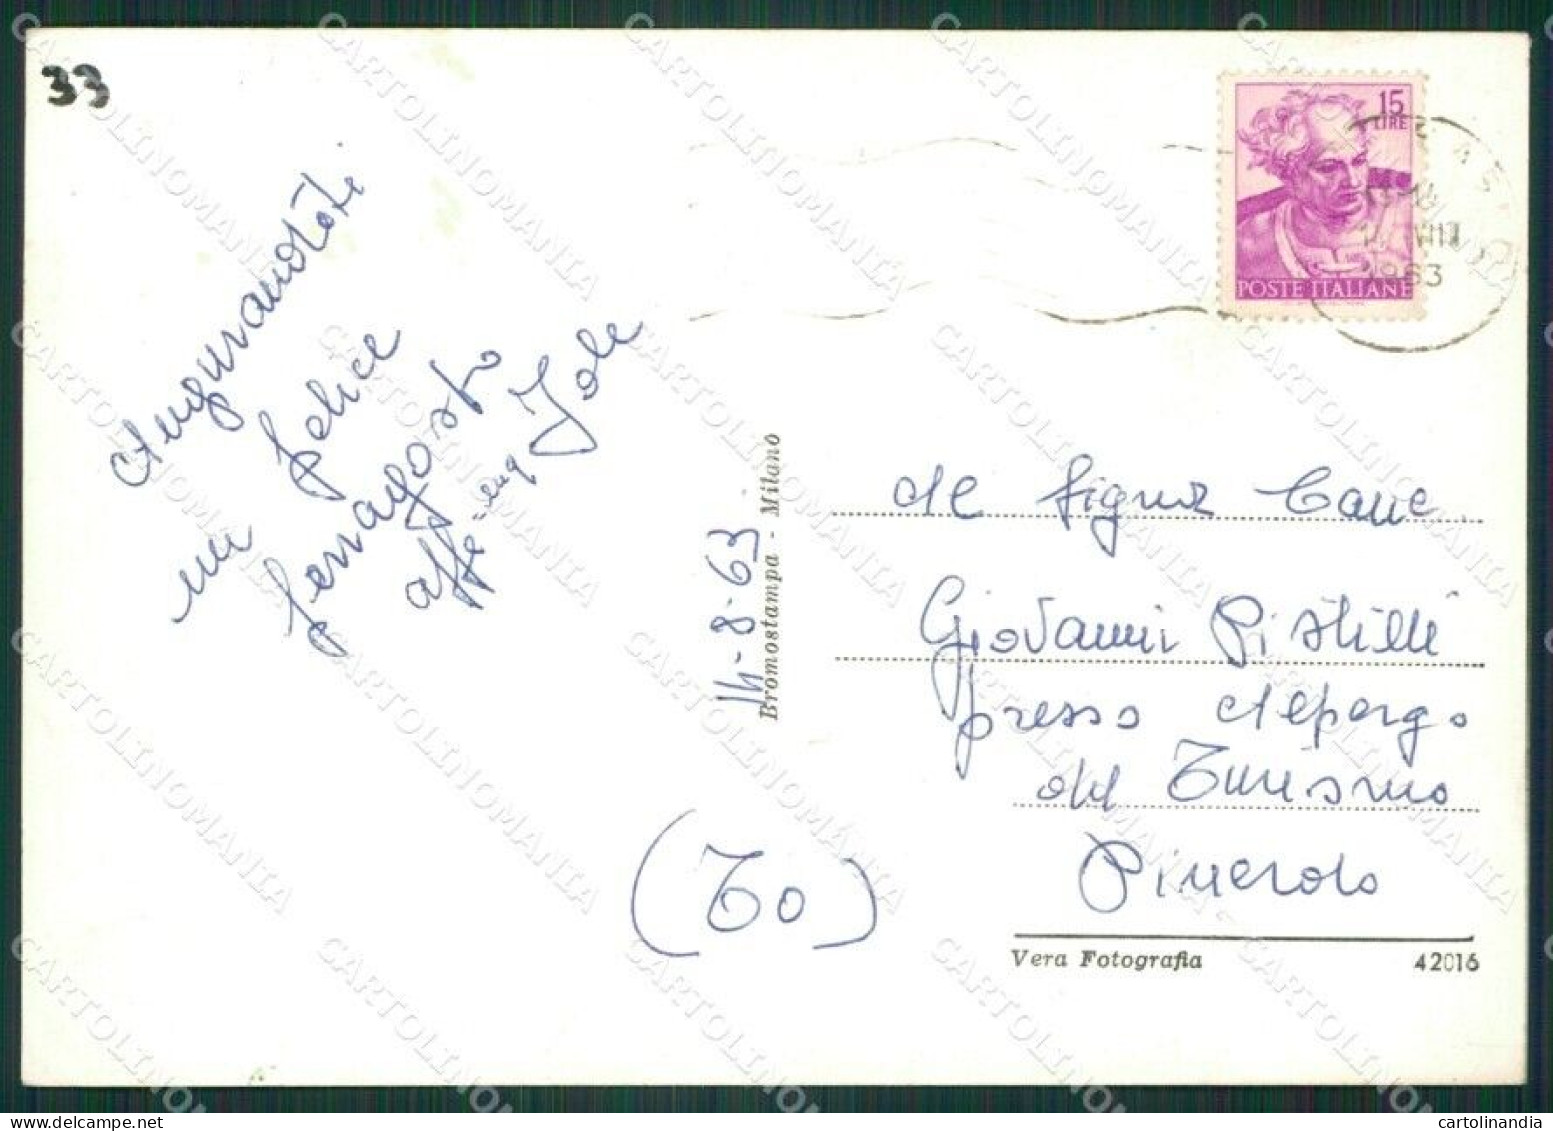 33
Augurandoti
un felice
ferragosto
aff.
Jole
14-8-63
Bromostampa - Milano
15
LIRE
POSTE ITALIANE
1963
Al Signor Cav.
Giovanni Pistilli
presso Albergo
del Turismo
Pinerolo
(TO)
Vera Fotografia 42016
CARTOLINOMANIA
cartolinandia